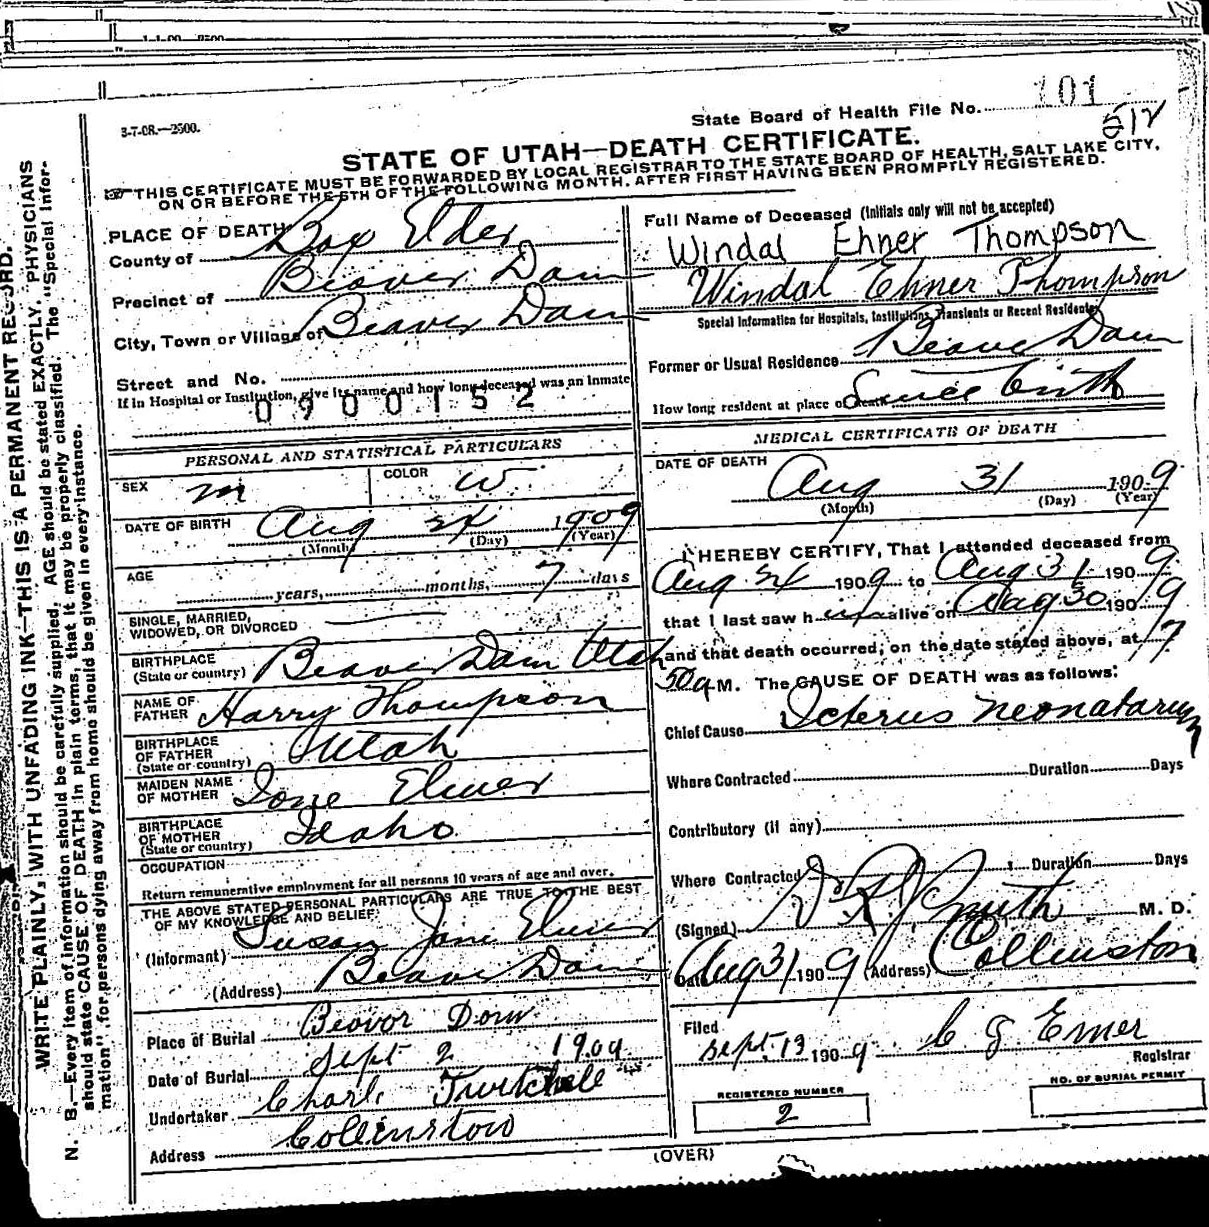 1-1-09 2500
3-7-08.—2500.
State Board of Health File No. 101
512
STATE OF UTAH—DEATH CERTIFICATE.
THIS CERTIFICATE MUST BE FORWARDED BY LOCAL REGISTRAR TO THE STATE BOARD OF HEALTH, SALT LAKE CITY,
ON OR BEFORE THE 5TH OF THE FOLLOWING MONTH, AFTER FIRST HAVING BEEN PROMPTLY REGISTERED.
WRITE PLAINLY, WITH UNFADING INK—THIS IS A PERMANENT RECORD.
N. B.—Every item of information should be carefully supplied. AGE should be stated EXACTLY. PHYSICIANS
should state CAUSE OF DEATH in plain terms, that it may be properly classified. The "Special Infor-
mation" for persons dying away from home should be given in every instance.
PLACE OF DEATH
County of Box Elder
Precinct of Beaver Dam
City, Town or Village of Beaver Dam
Street and No.
If in Hospital or Institution, give its name and how long deceased was an inmate
0900152
PERSONAL AND STATISTICAL PARTICULARS
SEX m COLOR w
DATE OF BIRTH Aug 24 1909
(Month) (Day) (Year)
AGE years, months, 7 days
SINGLE, MARRIED,
WIDOWED, OR DIVORCED
BIRTHPLACE
(State or country) Beaver Dam Utah
NAME OF
FATHER Harry Thompson
BIRTHPLACE
OF FATHER
(State or country) Utah
MAIDEN NAME
OF MOTHER Ione Elmer
BIRTHPLACE
OF MOTHER
(State or country) Idaho
OCCUPATION
Return remunerative employment for all persons 10 years of age and over.
THE ABOVE STATED PERSONAL PARTICULARS ARE TRUE TO THE BEST
OF MY KNOWLEDGE AND BELIEF.
(Informant) Susan Jane Elmer
(Address) Beaver Dam
Place of Burial Beovor Dom
Date of Burial Sept 2 1909
Undertaker Charl. Twitchell
Address Collinston
Full Name of Deceased (Initials only will not be accepted)
Windal Ehner Thompson
Windal Ehner Thompson
Special Information for Hospitals, Institutions, Transients or Recent Residents
Former or Usual Residence Beaver Dam
How long resident at place of death Since birth
MEDICAL CERTIFICATE OF DEATH
DATE OF DEATH Aug 31 1909
(Month) (Day) (Year)
I HEREBY CERTIFY, That I attended deceased from
Aug 24 1909 to Aug 31 1909
that I last saw him alive on Aug 30 1909
and that death occurred, on the date stated above, at 7
50 a M. The CAUSE OF DEATH was as follows:
Chief Cause Icterus Neonatarum
Where Contracted Duration Days
Contributory (if any)
Where Contracted Duration Days
(Signed) Dr R J Smith M. D.
Date Aug 31 1909 (Address) Collinston
Filed
Sept. 13 1909 C J Emer
Registrar
REGISTERED NUMBER
2
NO. OF BURIAL PERMIT
(OVER)